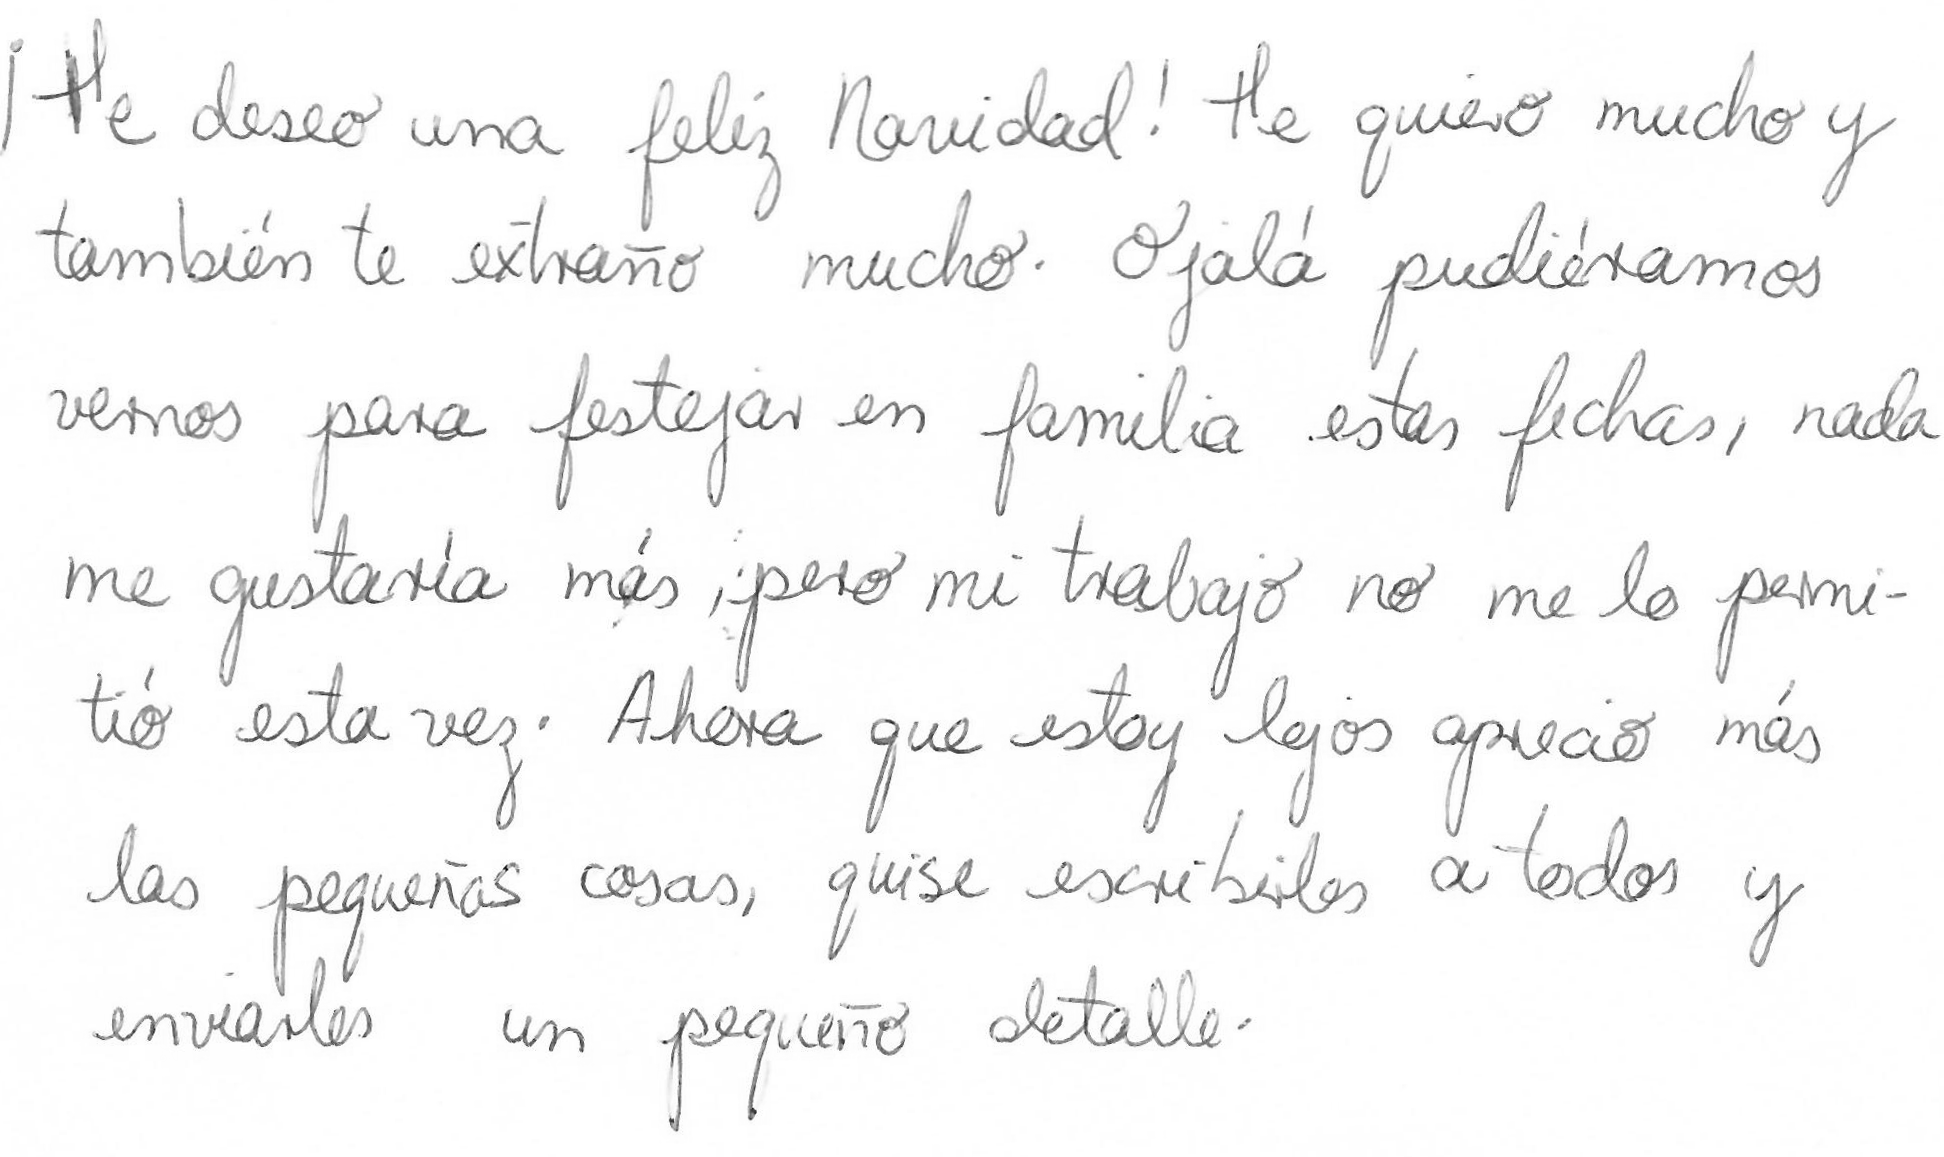 ¡Te deseo una feliz Navidad! Te quiero mucho y
también te extraño mucho. Ojalá pudiéramos
vernos para festejar en familia estas fechas, nada
me gustaría más, pero mi trabajo no me lo permi-
tió esta vez. Ahora que estoy lejos aprecio más
las pequeñas cosas, quise escribirles a todos y
enviarles un pequeño detalle.